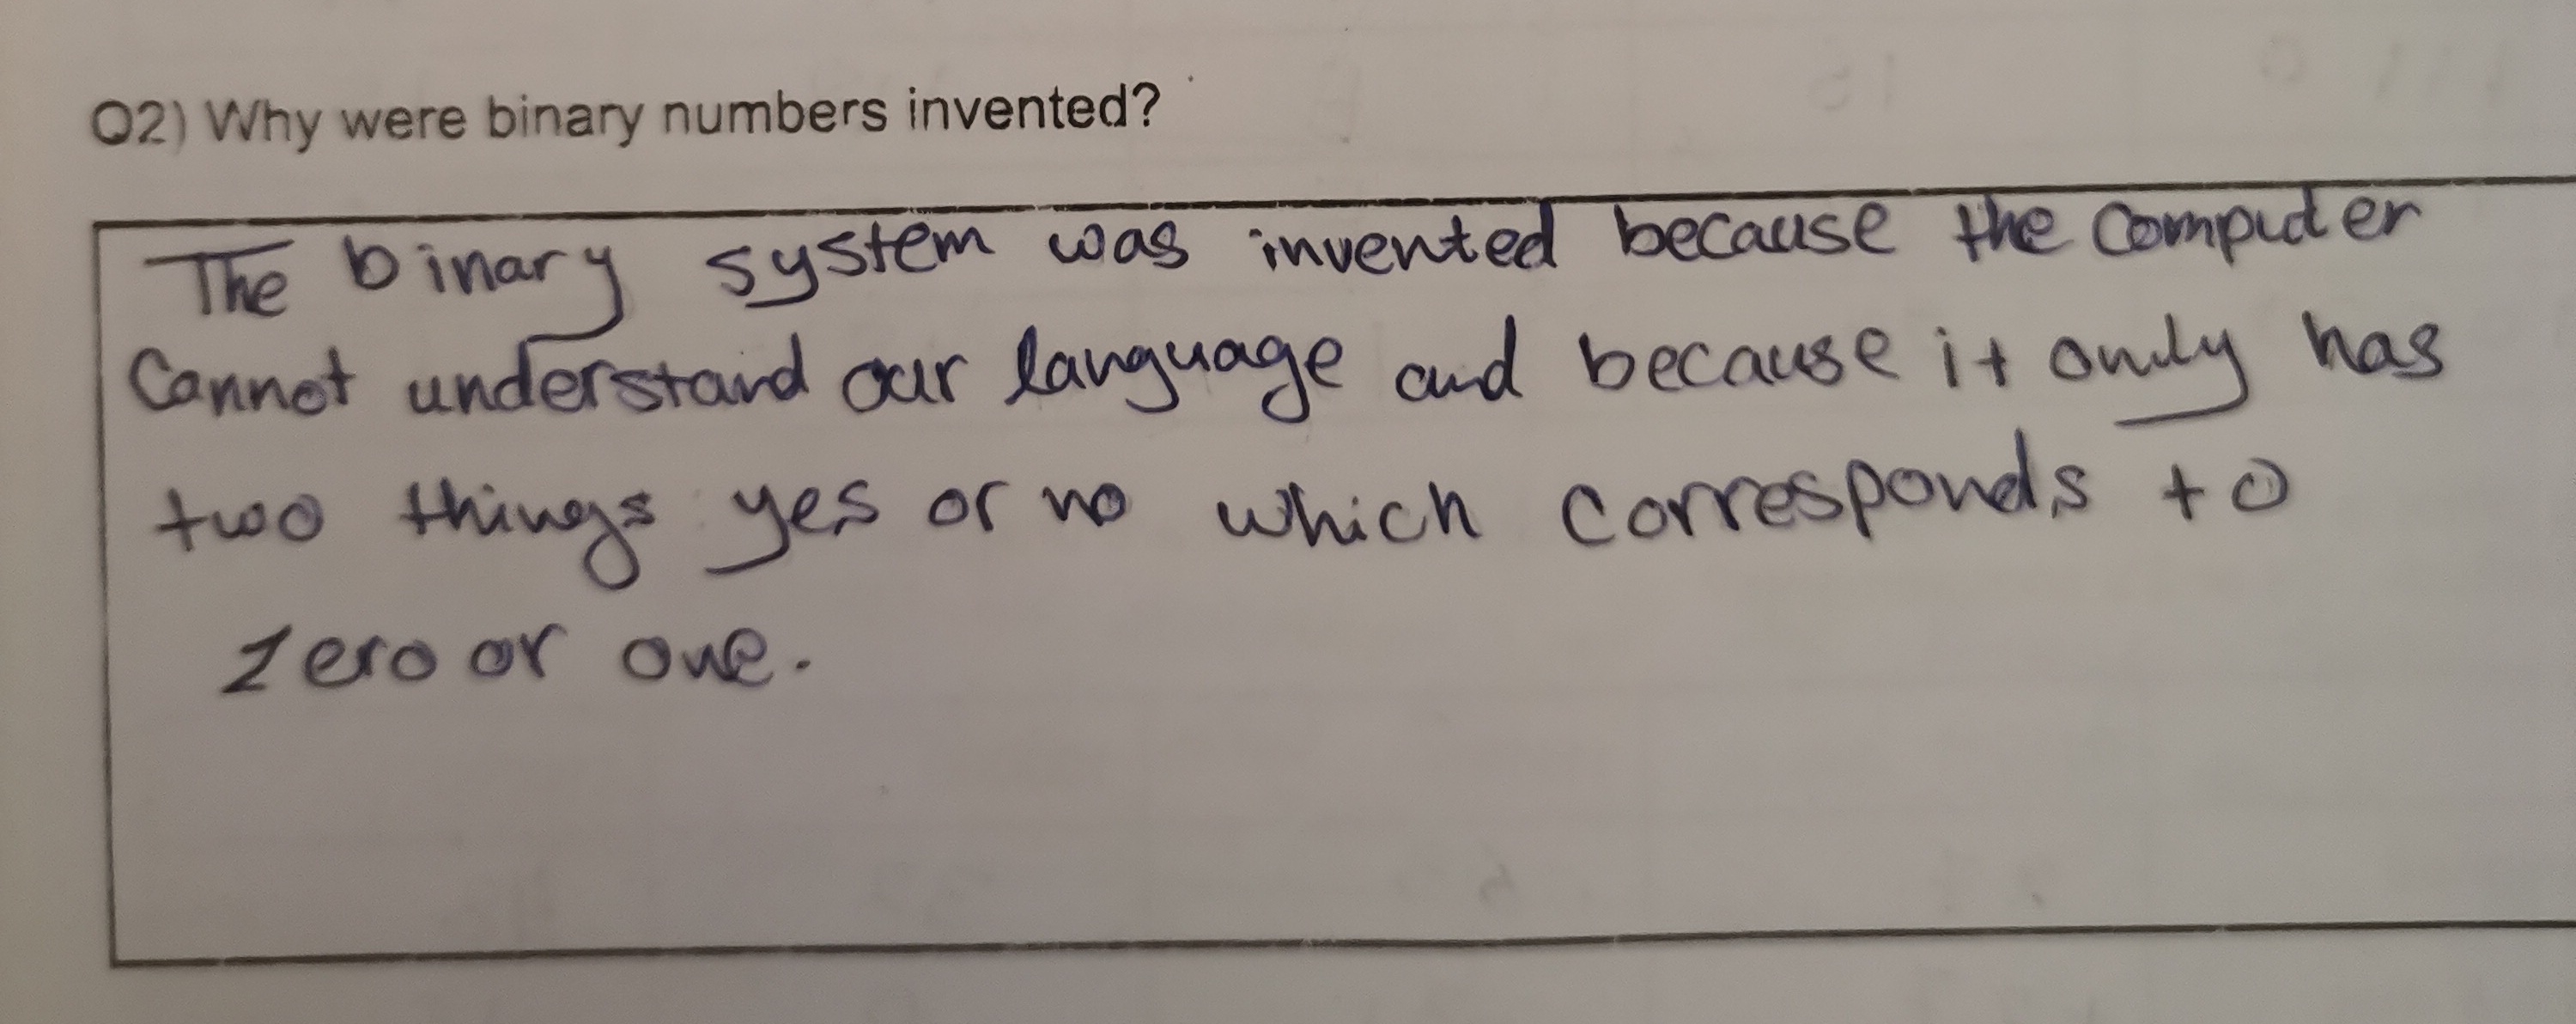 Q2) Why were binary numbers invented?
The binary system was invented because the computer
Cannot understand our language and because it only has
two things yes or no which corresponds to
zero or one.